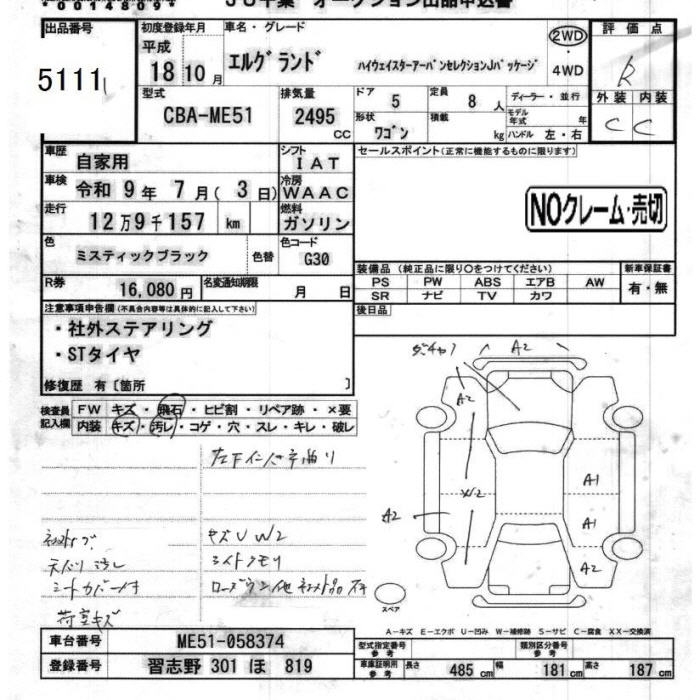 出品番号
5111
初度登録年月
平成
18 10 月
車名・グレード
エルグランド
ハイウェイスターアーバンセレクションJパッケージ
2WD
・
4WD
評価点
R
外装 内装
C C
型式
CBA-ME51
排気量
2495 CC
ドア
5
形状
ワゴン
定員
8 人
積載
kg
ディーラー・並行
モデル年式 年
ハンドル 左・右
車歴
自家用
シフト
IAT
車検
令和 9 年 7 月( 3 日)
冷房
WAAC
走行
12万9千157 km
燃料
ガソリン
色
ミスティックブラック
色替
色コード
G30
R券
16,080 円
名変通知期限
月 日
セールスポイント(正常に機能するものに限ります)
NOクレーム・売切
装備品 (純正品に限り○をつけてください)
PS PW ABS エアB AW
SR ナビ TV カワ
新車保証書
有・無
後日品
注意事項申告欄(不具合内容等は具体的に記入して下さい)
・社外ステアリング
・STタイヤ
修復歴 有〔箇所 〕
検査員記入欄
FW キズ・飛石・ヒビ割・リペア跡・×要
内装 キズ・汚レ・コゲ・穴・スレ・キレ・破レ
A2
A2
W2
A2
A1
A1
A2
キズU W2
天バリ汚れ
シートカバー付
荷室キズ
スペア
A-キズ E-エクボ U-凹み W-補修跡 S-サビ C-腐食 XX-交換済
車台番号
ME51-058374
登録番号
習志野 301 ほ 819
型式指定番号 参考
類別区分番号 参考
車庫証明用 参考
長さ 485 cm 幅 181 cm 高さ 187 cm